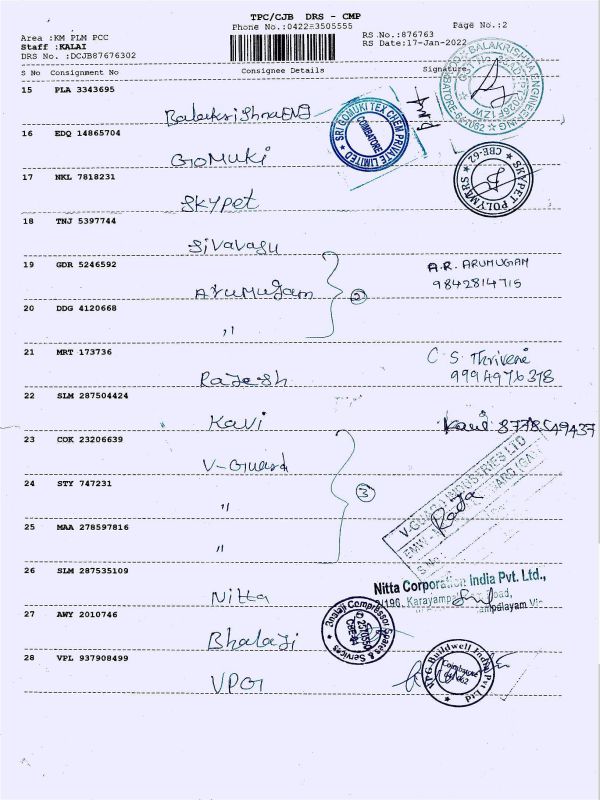 TPC/CJB DRS - CMP
Phone No.:0422-3505555
Page No.:2
Area :KM PLM PCC
RS No.:876763
Staff :KALAI
RS Date:17-Jan-2022
DRS No. :DCJB87676302
S No Consignment No Consignee Details Signature
15 PLA 3343695
Balakrishna ENG
16 EDQ 14865704
GOMUKI
SRI GOMUKI TEX CHEM PRIVATE LIMITED
COIMBATORE
17 NKL 7818231
SKYPET
SKYPET POLYMERS
CBE-62
18 TNJ 5397744
Sivavasu
19 GDR 5246592
Arumugam
2
A.R. ARUMUGAM
9842814715
20 DDG 4120668
,,
21 MRT 173736
Rajesh
C S Thriveni
9994976378
22 SLM 287504424
Kavi
23 COK 23206639
V-Guard
24 STY 747231
,,
3
V-GUARD INDUSTRIES LTD
Raja
25 MAA 278597816
,,
26 SLM 287535109
Nitta
Nitta Corporation India Pvt. Ltd.,
27 AWY 2010746
Bhalaji
Compressor Spares & Services
28 VPL 937908499
VPG
VPG Buildwell India Pvt Ltd
Coimbatore